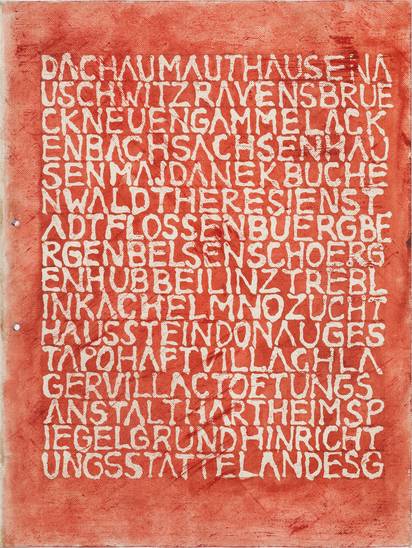 DACHAUMAUTHAUSENA
USCHWITZRAVENSBRUE
CKNEUENGAMMELACK
ENBACHSACHSENHAU
SENMAJDANEKBUCHE
NWALDTHERESIENST
ADTFLOSSENBUERGBE
RGENBELSENSCHOERG
ENHUBBEILINZTREBL
INKACHELMNOZUCHT
HAUSSTEINDONAUGES
TAPOHAFTVILLACHLA
GERVILLACTOFTUNGS
ANSTALTHARTHEIMSP
IEGELGRUNDHINRICHT
UNGSSTATTELANDESG